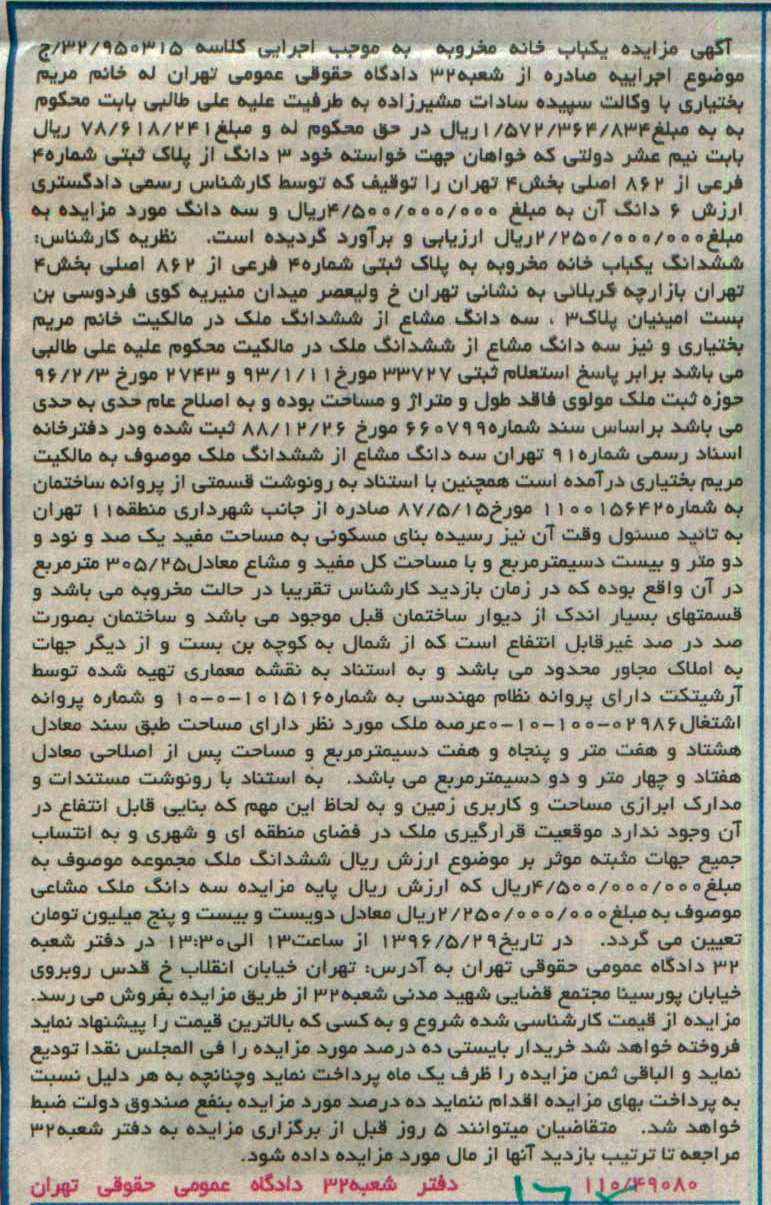 آگهی مزایده یکباب خانه مخروبه به موجب اجرایی کلاسه ۳۲/۹۵۰۳۱۵/ج
موضوع اجراییه صادره از شعبه۳۲ دادگاه حقوقی عمومی تهران له خانم مریم
بختیاری با وکالت سپیده سادات مشیرزاده به طرفیت علیه علی طالبی بابت محکوم
به به مبلغ۱/۵۷۲/۳۶۴/۸۳۴ریال در حق محکوم له و مبلغ۷۸/۶۱۸/۲۴۱ ریال
بابت نیم عشر دولتی که خواهان جهت خواسته خود ۳ دانگ از پلاک ثبتی شماره۴
فرعی از ۸۶۲ اصلی بخش۴ تهران را توقیف که توسط کارشناس رسمی دادگستری
ارزش ۶ دانگ آن به مبلغ ۴/۵۰۰/۰۰۰/۰۰۰ریال و سه دانگ مورد مزایده به
مبلغ۲/۲۵۰/۰۰۰/۰۰۰ریال ارزیابی و برآورد گردیده است. نظریه کارشناس:
ششدانگ یکباب خانه مخروبه به پلاک ثبتی شماره۴ فرعی از ۸۶۲ اصلی بخش۴
تهران بازارچه کربلائی به نشانی تهران خ ولیعصر میدان منیریه کوی فردوسی بن
بست امینیان پلاک۳ ، سه دانگ مشاع از ششدانگ ملک در مالکیت خانم مریم
بختیاری و نیز سه دانگ مشاع از ششدانگ ملک در مالکیت محکوم علیه علی طالبی
می باشد برابر پاسخ استعلام ثبتی ۳۳۷۲۷ مورخ۹۳/۱/۱۱ و ۲۷۴۳ مورخ ۹۶/۲/۳
حوزه ثبت ملک مولوی فاقد طول و متراژ و مساحت بوده و به اصلاح عام حدی به حدی
می باشد براساس سند شماره۶۶۰۷۹۹ مورخ ۸۸/۱۲/۲۶ ثبت شده ودر دفترخانه
اسناد رسمی شماره۹۱ تهران سه دانگ مشاع از ششدانگ ملک موصوف به مالکیت
مریم بختیاری درآمده است همچنین با استناد به رونوشت قسمتی از پروانه ساختمان
به شماره۱۱۰۰۱۵۶۴۲ مورخ۸۷/۵/۱۵ صادره از جانب شهرداری منطقه۱۱ تهران
به تائید مسئول وقت آن نیز رسیده بنای مسکونی به مساحت مفید یک صد و نود و
دو متر و بیست دسیمترمربع و با مساحت کل مفید و مشاع معادل۳۰۵/۲۵ مترمربع
در آن واقع بوده که در زمان بازدید کارشناس تقریبا در حالت مخروبه می باشد و
قسمتهای بسیار اندک از دیوار ساختمان قبل موجود می باشد و ساختمان بصورت
صد در صد غیرقابل انتفاع است که از شمال به کوچه بن بست و از دیگر جهات
به املاک مجاور محدود می باشد و به استناد به نقشه معماری تهیه شده توسط
آرشیتکت دارای پروانه نظام مهندسی به شماره۱۰۱۵۱۶-۰-۱۰ و شماره پروانه
اشتغال۰۲۹۸۶-۱۰۰-۱۰-۰عرصه ملک مورد نظر دارای مساحت طبق سند معادل
هشتاد و هفت متر و پنجاه و هفت دسیمترمربع و مساحت پس از اصلاحی معادل
هفتاد و چهار متر و دو دسیمترمربع می باشد. به استناد با رونوشت مستندات و
مدارک ابرازی مساحت و کاربری زمین و به لحاظ این مهم که بنایی قابل انتفاع در
آن وجود ندارد موقعیت قرارگیری ملک در فضای منطقه ای و شهری و به انتساب
جمیع جهات مثبته موثر بر موضوع ارزش ریال ششدانگ ملک مجموعه موصوف به
مبلغ۴/۵۰۰/۰۰۰/۰۰۰ریال که ارزش ریال پایه مزایده سه دانگ ملک مشاعی
موصوف به مبلغ۲/۲۵۰/۰۰۰/۰۰۰ریال معادل دویست و بیست و پنج میلیون تومان
تعیین می گردد. در تاریخ۱۳۹۶/۵/۲۹ از ساعت۱۳ الی۱۳:۳۰ در دفتر شعبه
۳۲ دادگاه عمومی حقوقی تهران به آدرس: تهران خیابان انقلاب خ قدس روبروی
خیابان پورسینا مجتمع قضایی شهید مدنی شعبه۳۲ از طریق مزایده بفروش می رسد.
مزایده از قیمت کارشناسی شده شروع و به کسی که بالاترین قیمت را پیشنهاد نماید
فروخته خواهد شد خریدار بایستی ده درصد مورد مزایده را فی المجلس نقدا تودیع
نماید و الباقی ثمن مزایده را ظرف یک ماه پرداخت نماید وچنانچه به هر دلیل نسبت
به پرداخت بهای مزایده اقدام ننماید ده درصد مورد مزایده بنفع صندوق دولت ضبط
خواهد شد. متقاضیان میتوانند ۵ روز قبل از برگزاری مزایده به دفتر شعبه۳۲
مراجعه تا ترتیب بازدید آنها از مال مورد مزایده داده شود.
۱۱۰/۴۹۰۸۰ دفتر شعبه۳۲ دادگاه عمومی حقوقی تهران